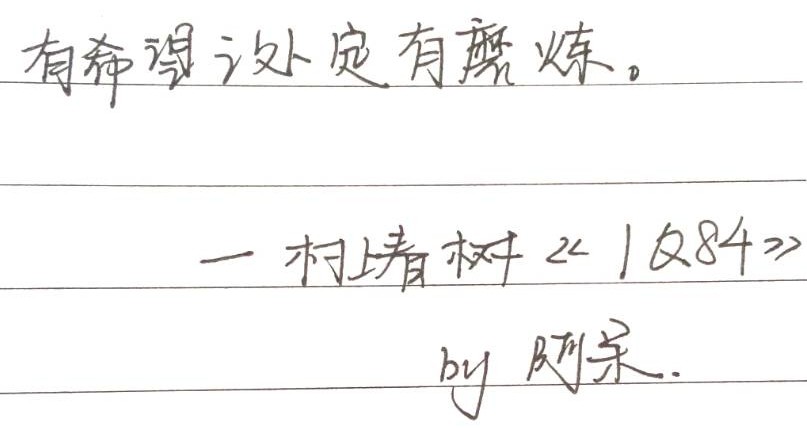 有希望之处定有磨炼。
— 村上春树《1Q84》
by 阿呆.